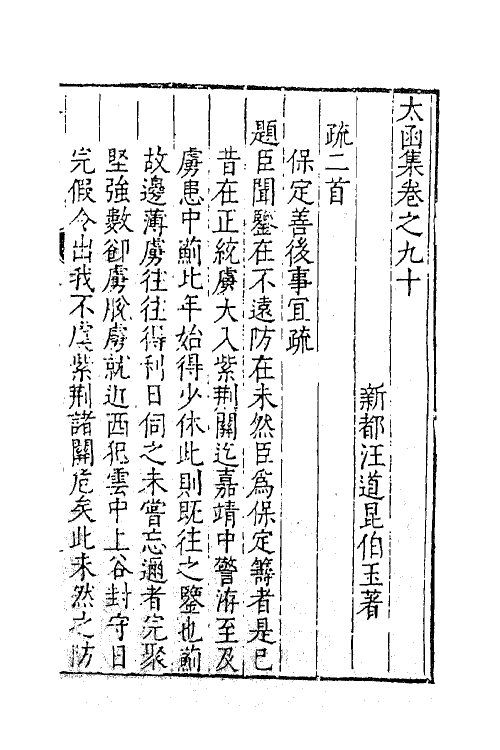 太函集卷之九十
新都汪道昆伯玉著
疏二首
保定善後事宜疏
題臣聞鑒在不遠防在未然臣爲保定籌者是已
昔在正統虜大入紫荆關迄嘉靖中警洊至及
虜患中薊比年始得少休此則旣往之鑒也薊
故邊薄虜往往得利日伺之未嘗忘邇者完聚
堅強數卻虜脫虜就近西犯雲中上谷封守日
完假令出我不虞紫荆諸關危矣此未然之防